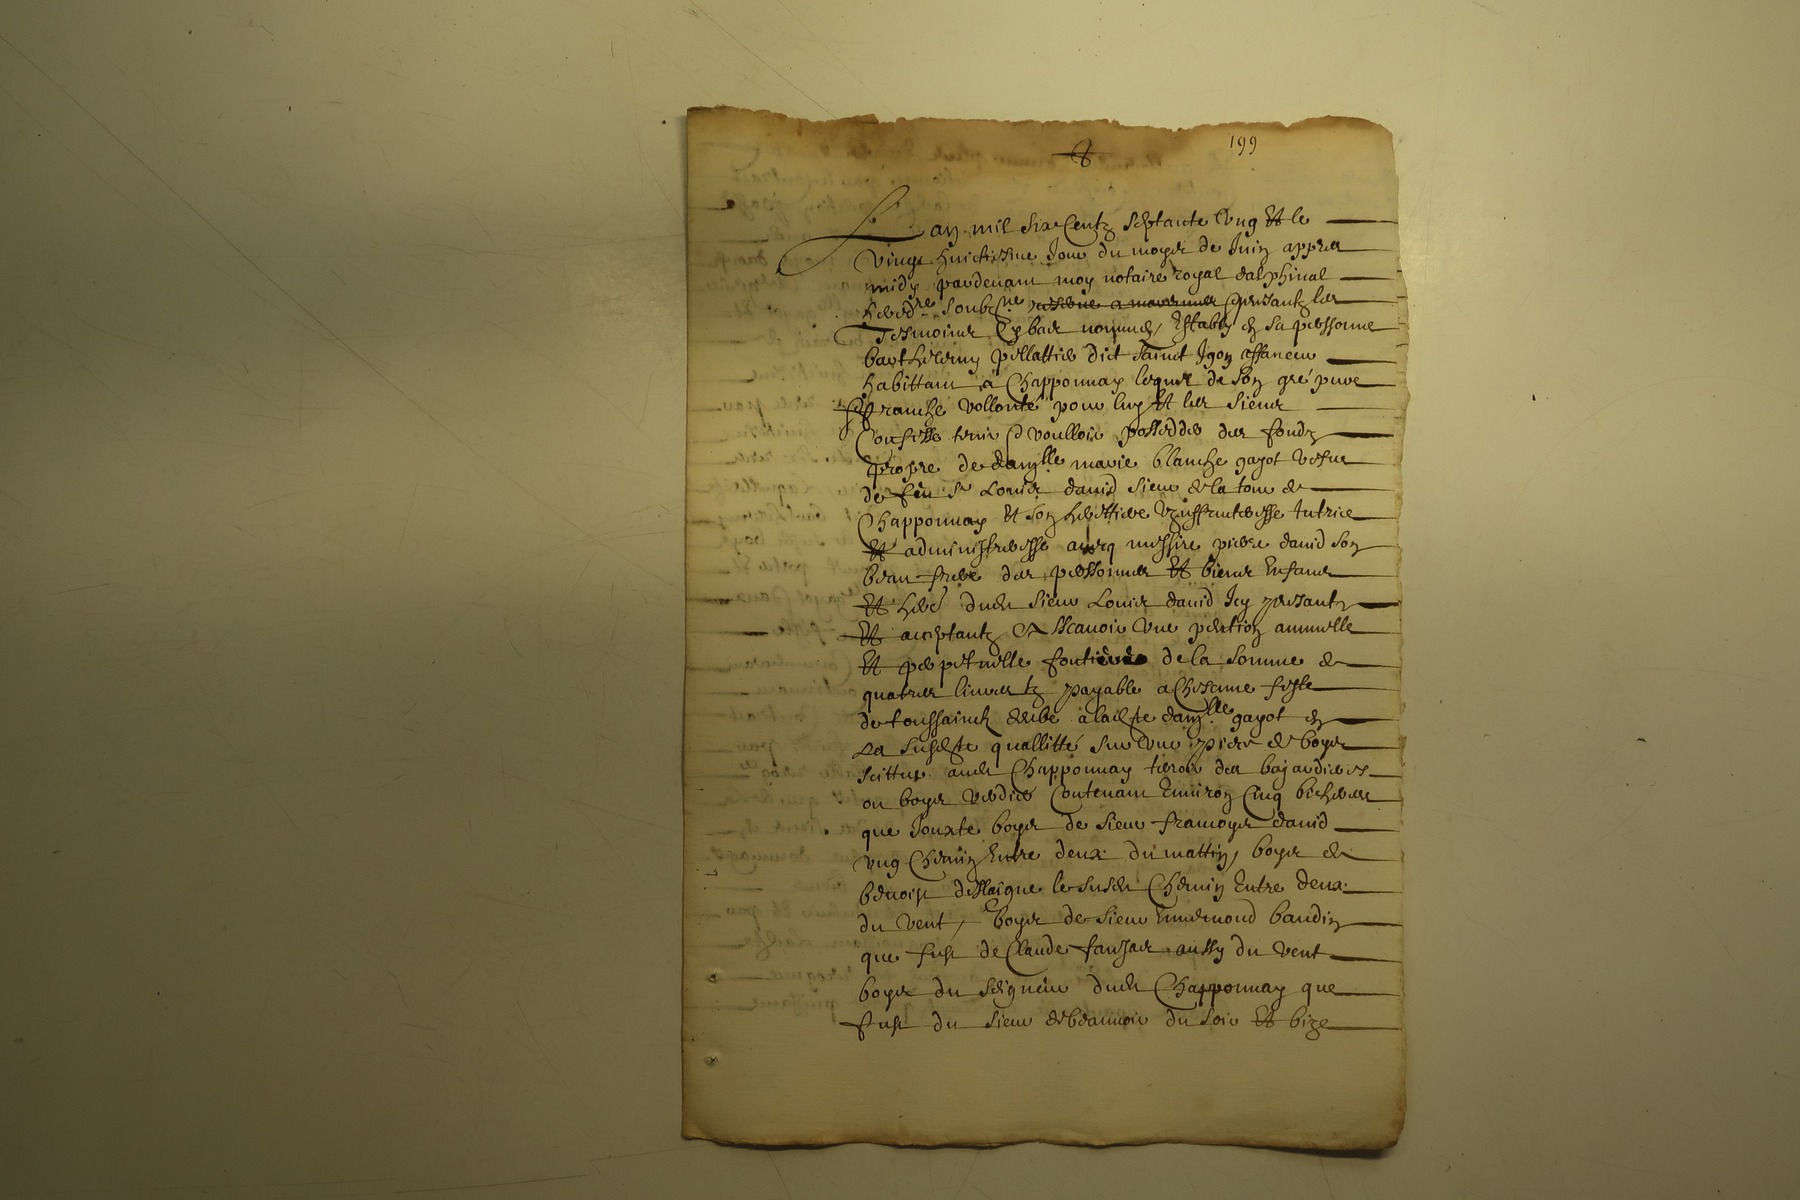 199
8
Lan mil six Centz septante Ung Et le
vingt huictiesme Jour du moys de Juin appres
midy pardevant moy notaire royal dalphinal
soubz.ne presantz les
Tesmoings Cy bas nommes, Estably en sa personne
barthelemy pellattier dict Sainct affaneur
habittant a Chapponnay lequel de son gré pure
Et franche vollonté pour luy Et les siens
Confesse tenir & voulloir posseder des fondz
propre de damlle marie blanche gayot vefve
de feu Sr Louis david sieur de la tour de
Chapponnay Et son herettiere Uzuffructeresse tutrice
Et administreresse avecq messire pierre david son
beau frere des personnes Et biens Enfans
Et her dudt sieur Louis david Icy presantz
Et acceptantz A Scavoir Une pention annuelle
Et perpetuelle de la somme de
quatres livres tz payable a Chescune feste
de toussainctz a ladte damlle gayot en
La susdte quallitté sur Une piece de boys
scittué audt Chapponnay terroir des
ou boys Contenant Environ Cinq bicherees
que Jouxte boys de sieur francoys david
Ung Chemin Entre deux du mattin, boys de
benoist le susdt Chemin Entre deux
du vent, boys de sieur Ennemond baudin
que fust de Claude aussy du vent
boys du seigneur dudt Chapponnay que
fust du sieur du soir Et bize